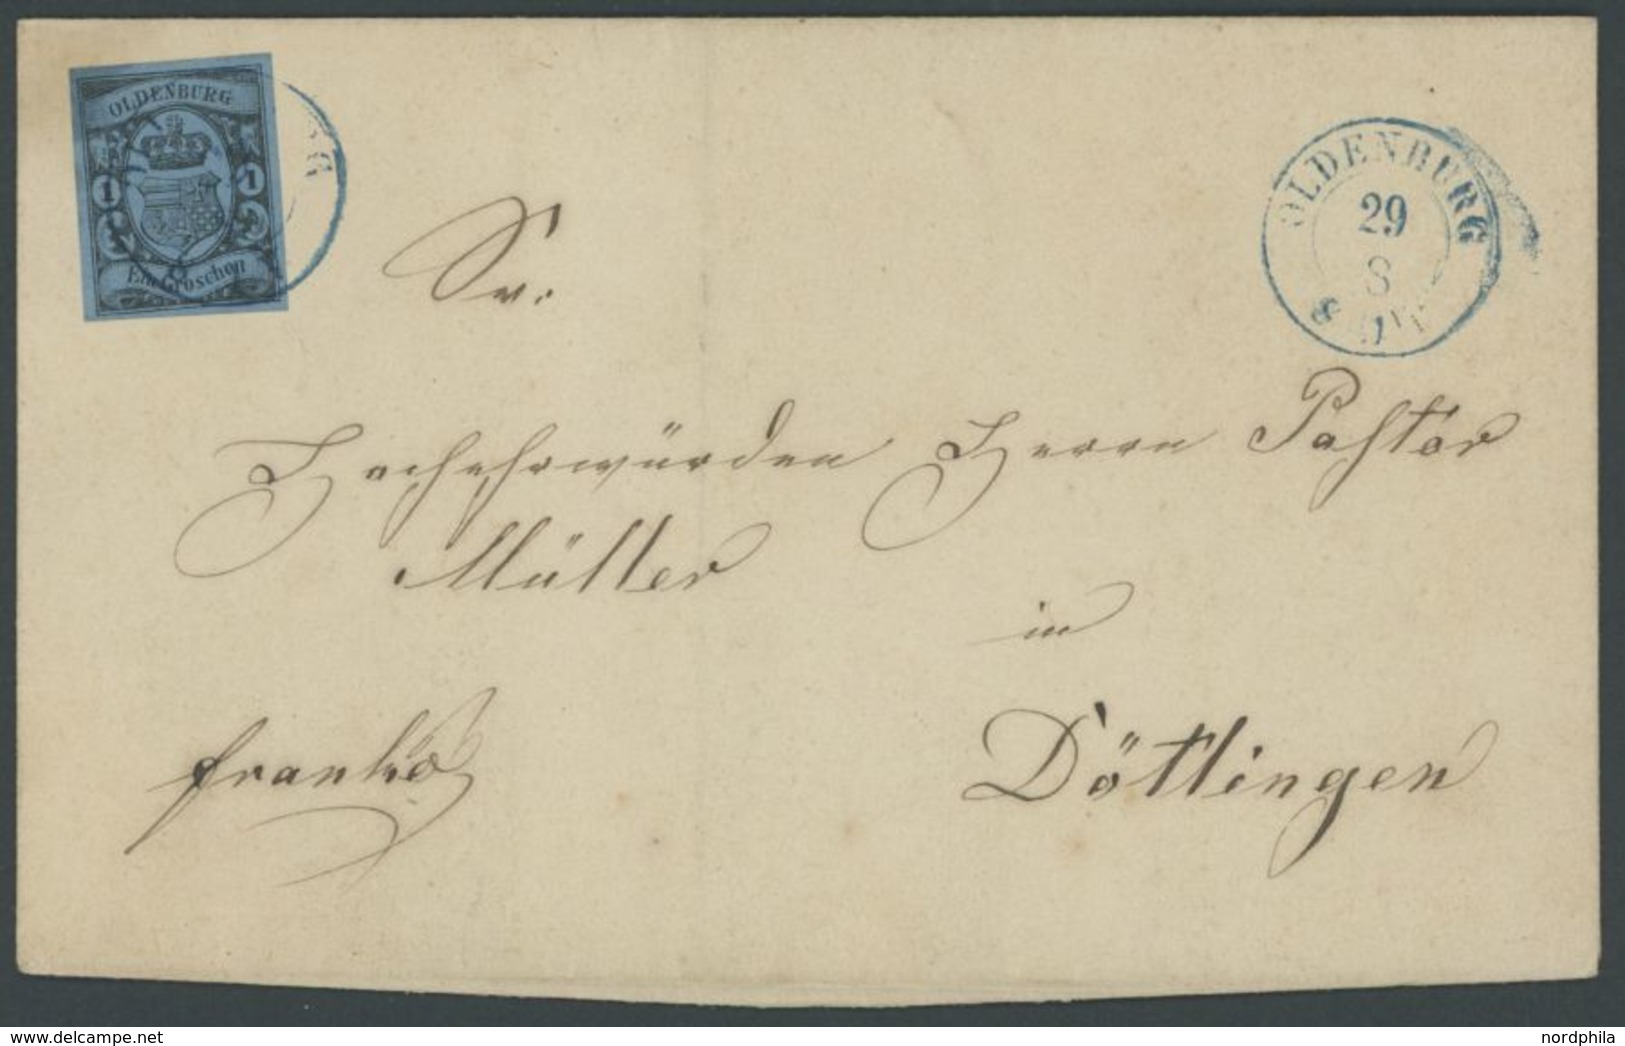 OLDENBURG
1 1
Ein Groschen
OLDENBURG
29
8
Sr.
Hochehrwürden Herrn Pastor
Müller
in
franko
Dötlingen
www.delcampe.net
nordphila